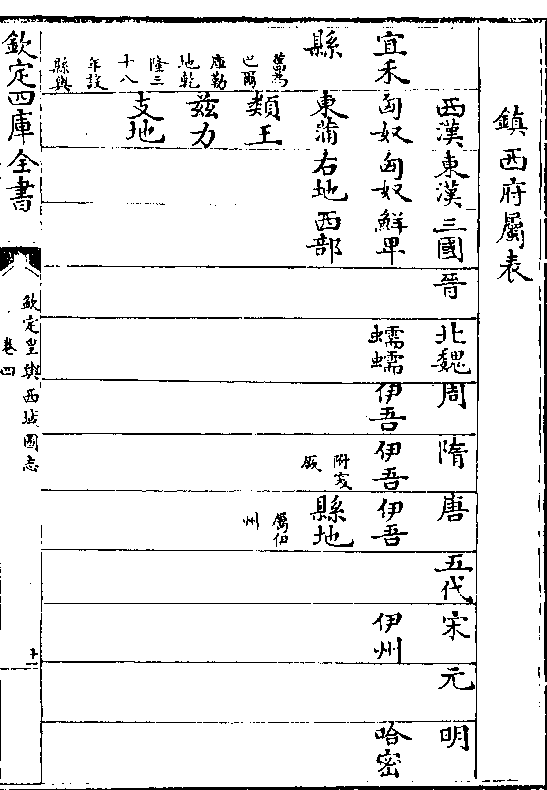 鎮西府屬表
西漢 東漢 三國 晉 北魏 周 隋 唐 五代 宋 元 明
宜禾
縣
舊為
巴爾
庫勒
地乾
隆三
十八
年設
縣與
匈奴
東蒲
類王
茲力
支地
匈奴
右地
鮮卑
西部
蠕蠕
伊吾
伊吾
附突
厥
伊吾
縣地
屬伊
州
伊州
哈密
欽定四庫全書
欽定皇輿西域圖志
卷四
十一